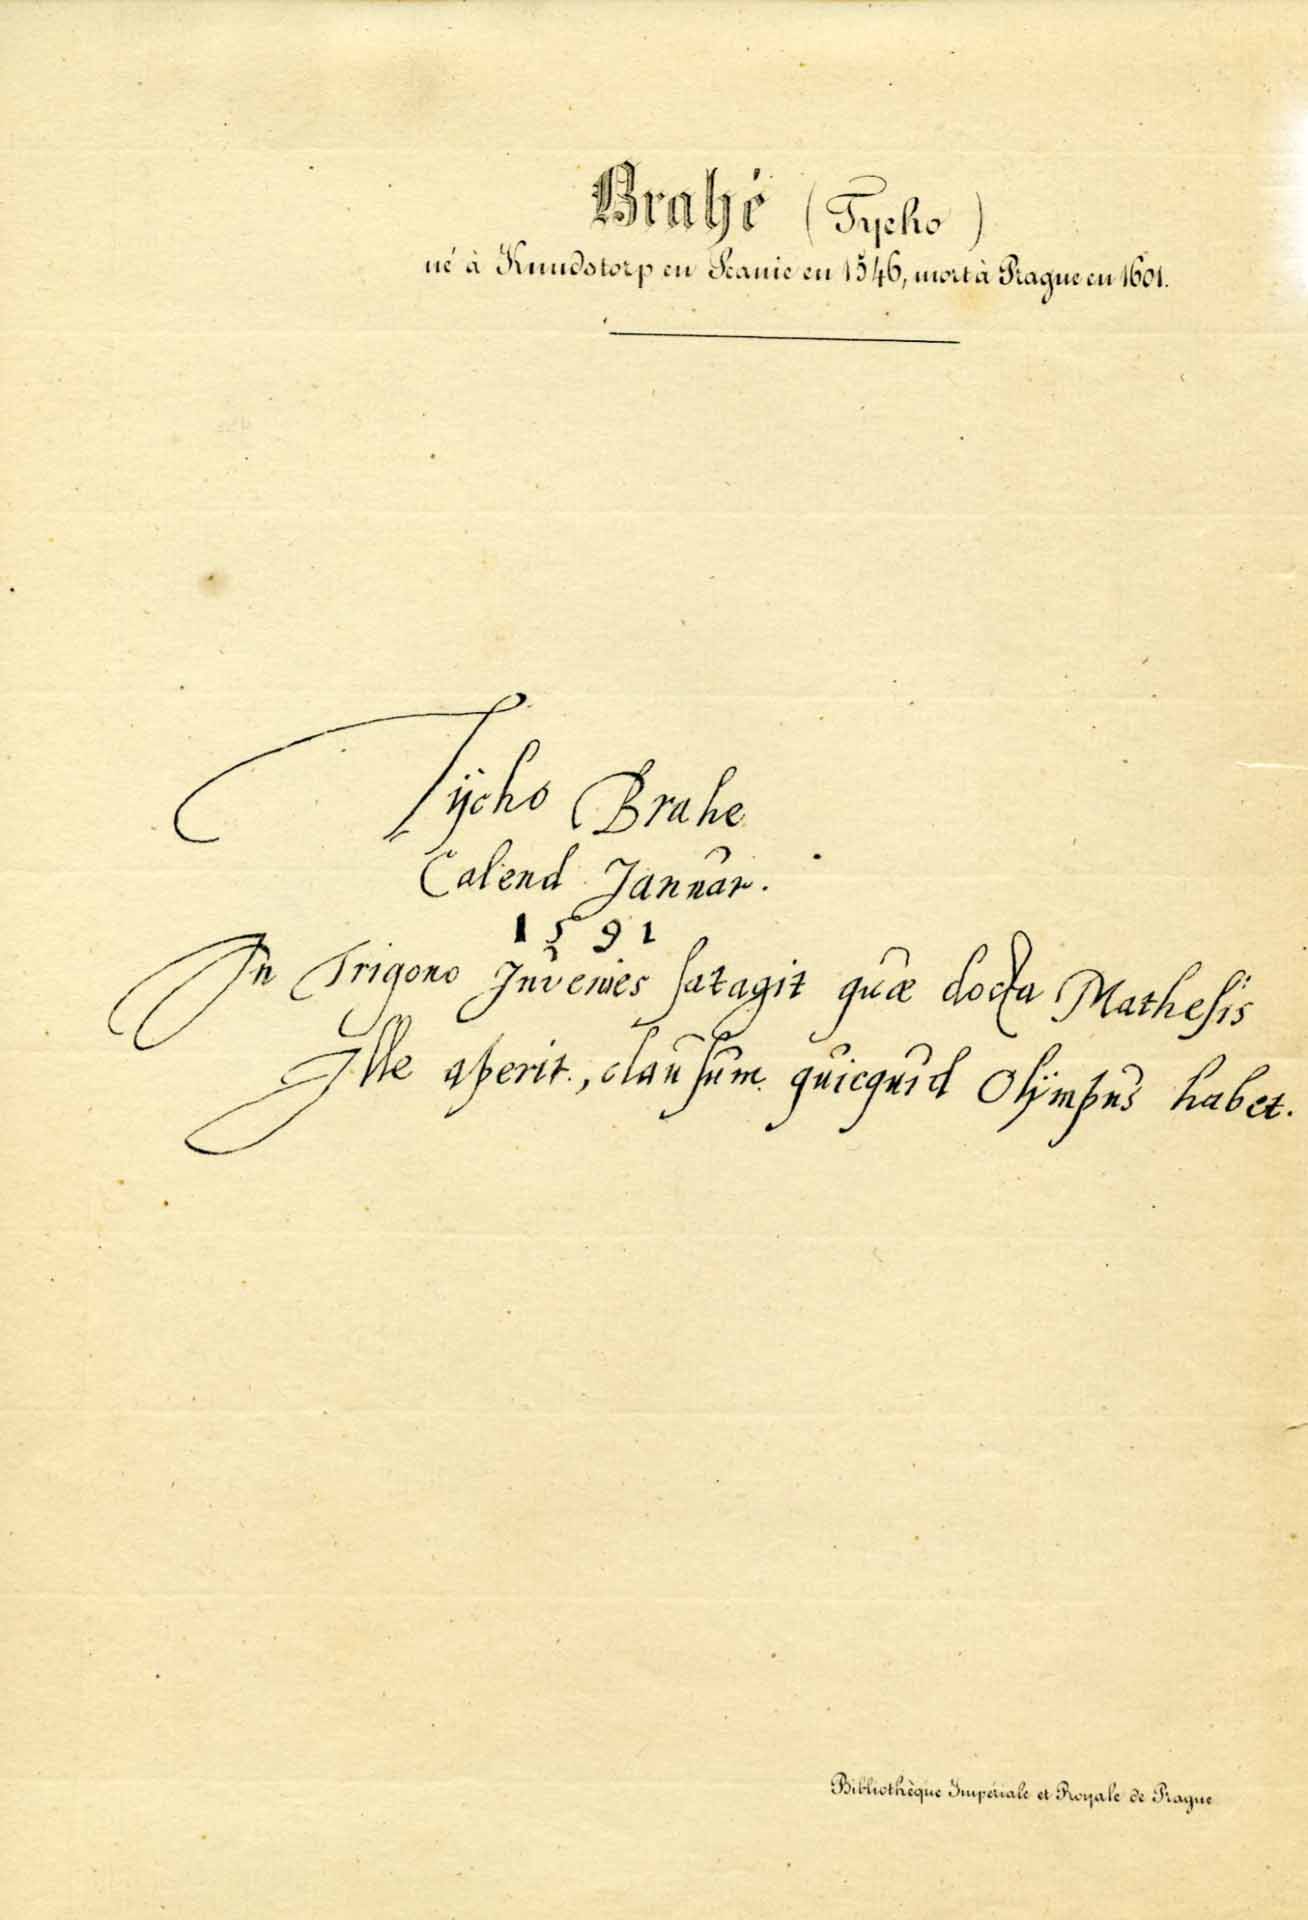 Brahé (Tycho)
né à Knudstorp en Scanie en 1546, mort à Prague en 1601.
Tÿcho Brahe
Calend Januar.
1591
In Trigono Invenies satagit quæ docta Mathesis
Ille aperit, clausum quicquid Olÿmpus habet.
Bibliothèque Impériale et Royale de Prague